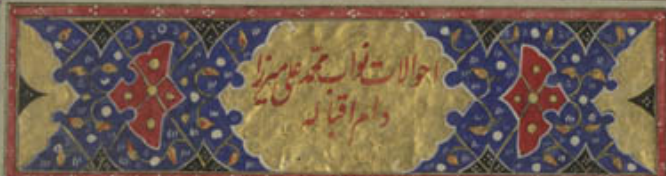 احوالات نواب محمد علی میرزا
دام اقباله